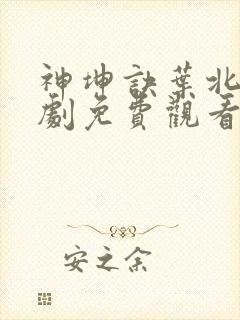 神坤訣葉北
劇免費觀看
安之余